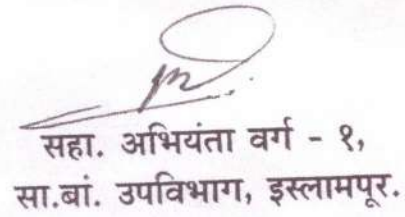 सहा. अभियंता वर्ग - १,
सा.बां. उपविभाग, इस्लामपूर.